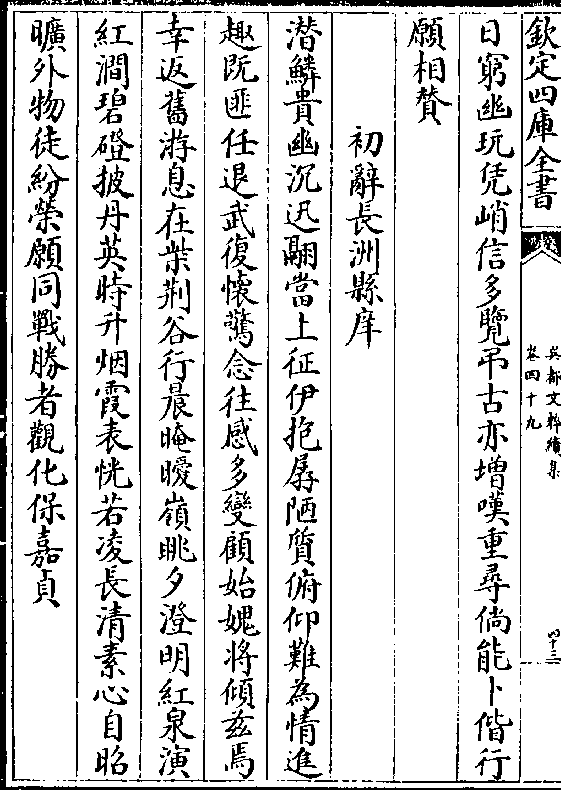 欽定四庫全書
吳都文粹續集
卷四十九
四十三
日窮幽玩凭峭信多覽弔古亦增嘆重尋倘能卜偕行
願相贊
初辭長洲縣庠
潜鱗貴幽沉迅翮當上征伊抱孱陋質俯仰難為情進
趣既匪任退武復懷驚念往感多變顧始媿將傾兹焉
幸返舊游息在柴荆谷行晨晻曖嶺眺夕澄明紅泉演
紅澗碧磴披丹英時升烟霞表恍若凌長清素心自昭
曠外物徒紛榮願同戰勝者觀化保嘉貞